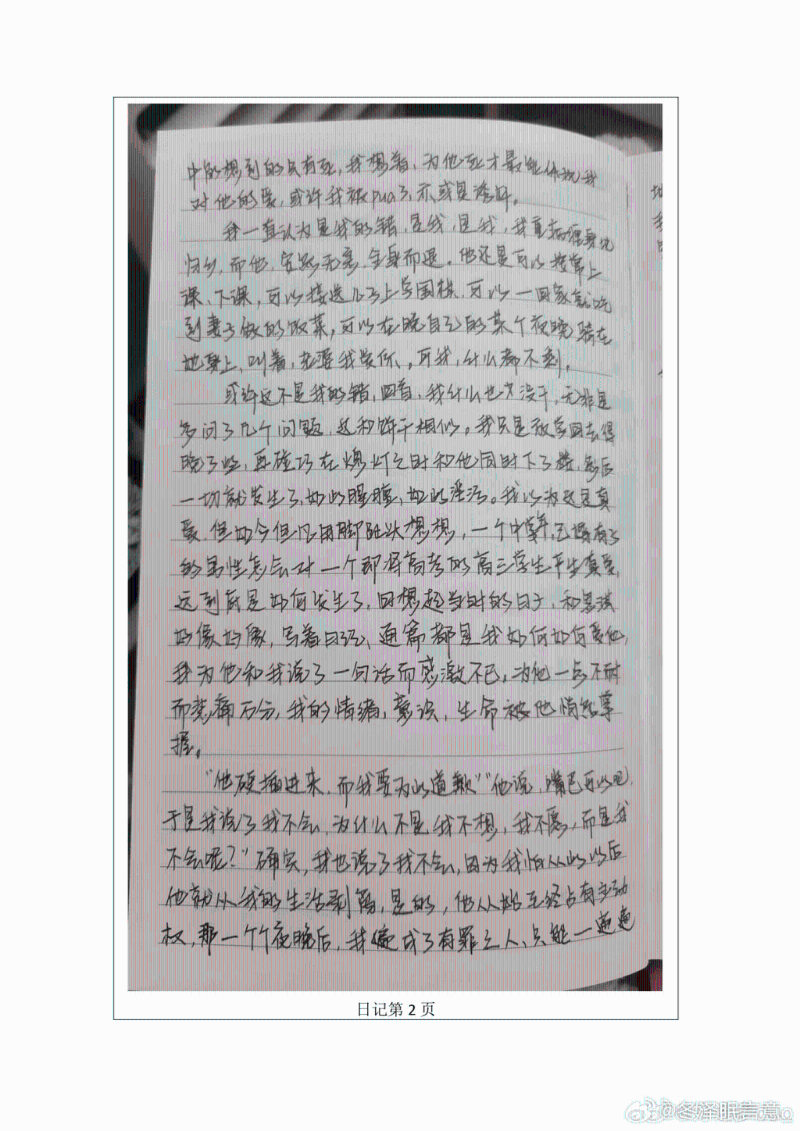 中能想到的只有死,我想着,为他死才最能体现我
对他的爱,或许我被pua了,亦或是
我一直认为是我的错,是我,是我,我
归乡,而他,安然无恙,全身而退。他还是可以正常上
课、下课,可以接送儿子上学回校,可以一回家就吃
到妻子做的饭菜,可以在晚自习的某个夜晚骑在
她身上,叫着,老婆我爱你。可我,什么都不剩。
或许这不是我的错,回首,我什么也没干,无非是
多问了几个问题,这和饼干相似。我只是放学回去得
晚了些,再碰巧在熄灯之时和他同时下了楼,然后
一切就发生了,如此腥膻,如此淫污。我以为这是真
爱,但如今但凡用脚趾头想想,一个中年已婚有子
的男性怎会对一个即将高考的高三学生产生真爱,
这到底是如何发生了,回想起当时的日子,和思琪
好像好像,写着日记,通篇都是我如何如何爱他,
我为他和我说了一句话而感激不已,为他一点不耐
而悲痛万分,我的情绪,意识,生命被他悄然掌
握。
“他硬插进来,而我要为此道歉”“他说,嘴巴可以吧,
于是我说了我不会,为什么不是我不想,我不愿,而是我
不会呢?”确实,我也说了我不会,因为我怕从此以后
他就从我的生活剥离,是的,他从始至终占有主动
权,那一个个夜晚后,我便成了有罪之人,只能一遍遍
日记第 2 页
@冬泽眠春意